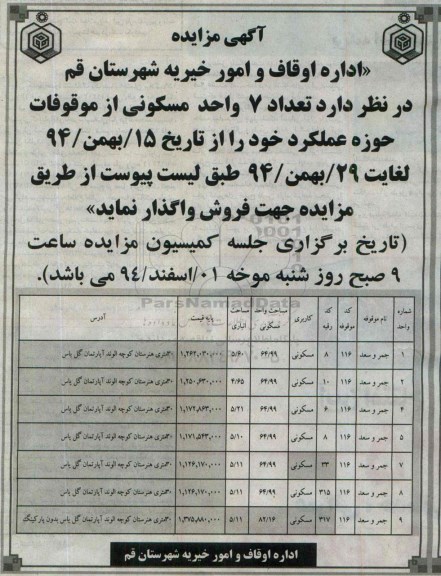 آگهی مزایده
«اداره اوقاف و امور خیریه شهرستان قم
در نظر دارد تعداد ۷ واحد مسکونی از موقوفات
حوزه عملکرد خود را از تاریخ ۱۵/بهمن/۹۴
لغایت ۲۹/بهمن/۹۴ طبق لیست پیوست از طریق
مزایده جهت فروش واگذار نماید»
(تاریخ برگزاری جلسه کمیسیون مزایده ساعت
۹ صبح روز شنبه موخه ۰۱/اسفند/۹۴ می باشد).
ParsNamadData
شماره واحد نام موقوفه کد موقوفه کد رقبه کاربری مساحت واحد مسکونی مساحت انباری پایه قیمت آدرس
۱ جمر و سعد ۱۱۶ ۸ مسکونی ۶۴/۹۹ ۵/۶۰ ۱,۲۶۲,۰۳۰,۰۰۰ ۳۰متری هنرستان کوچه الوند آپارتمان گل یاس
۲ جمر و سعد ۱۱۶ ۱۰ مسکونی ۶۴/۹۹ ۴/۶۵ ۱,۲۵۰,۶۳۰,۰۰۰ ۳۰متری هنرستان کوچه الوند آپارتمان گل یاس
۴ جمر و سعد ۱۱۶ ۶ مسکونی ۶۴/۹۹ ۵/۲۱ ۱,۱۷۲,۸۶۳,۰۰۰ ۳۰متری هنرستان کوچه الوند آپارتمان گل یاس
۵ جمر و سعد ۱۱۶ ۸ مسکونی ۶۴/۹۹ ۵/۱۰ ۱,۱۷۱,۵۴۳,۰۰۰ ۳۰متری هنرستان کوچه الوند آپارتمان گل یاس
۷ جمر و سعد ۱۱۶ ۳۳ مسکونی ۶۴/۹۹ ۵/۱۱ ۱,۱۲۶,۱۷۰,۰۰۰ ۳۰متری هنرستان کوچه الوند آپارتمان گل یاس
۸ جمر و سعد ۱۱۶ ۳۱۵ مسکونی ۶۴/۹۹ ۵/۱۱ ۱,۱۲۶,۱۷۰,۰۰۰ ۳۰متری هنرستان کوچه الوند آپارتمان گل یاس
۹ جمر و سعد ۱۱۶ ۳۱۷ مسکونی ۸۲/۱۶ ۵/۱۱ ۱,۳۷۵,۸۸۰,۰۰۰ ۳۰متری هنرستان کوچه الوند آپارتمان گل یاس بدون پارکینگ
اداره اوقاف و امور خیریه شهرستان قم